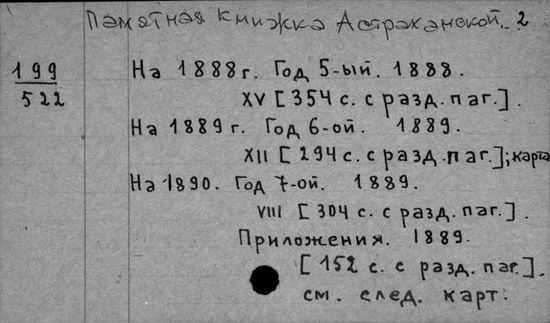 Памятная книжка Астраханской.. 2
199
522
На 1888 г. Год 5-ый. 1888.
XV [354 с. с разд. паг.].
На 1889 г. Год 6-ой. 1889.
XII [294 с. с разд. паг.]; карта
На 1890. Год 7-ой. 1889.
VIII [304 с. с разд. паг.].
Приложения. 1889.
[152 с. с разд. паг.].
см. след. карт: